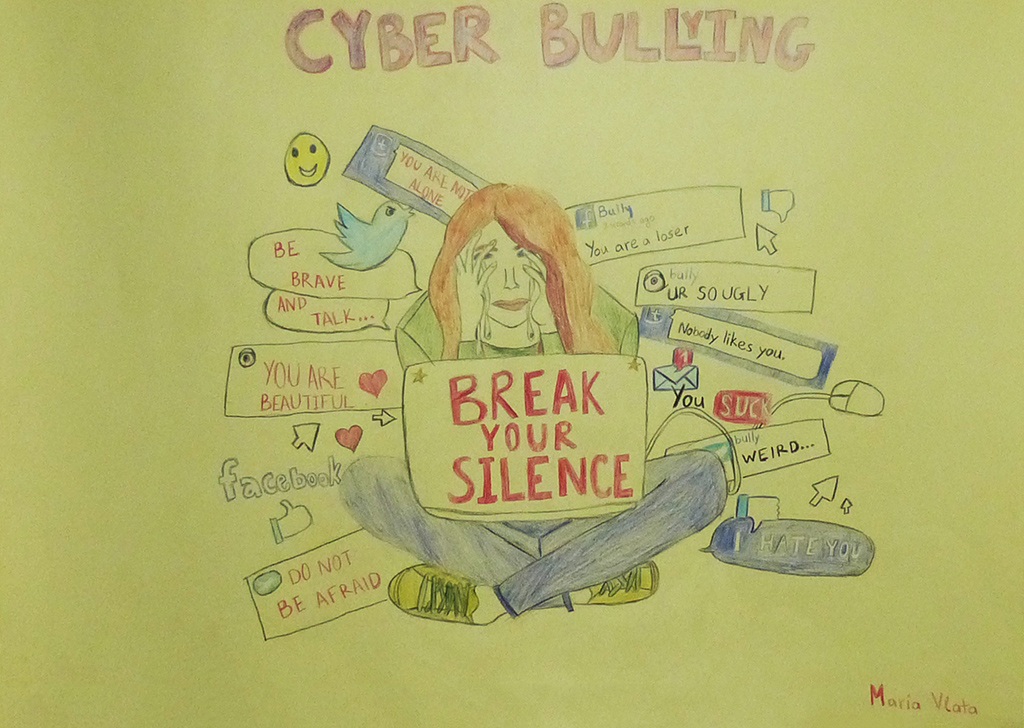 CYBER BULLYING
YOU ARE NOT
ALONE
BE
BRAVE
AND
TALK...
YOU ARE
BEAUTIFUL
facebook
DO NOT
BE AFRAID
BREAK
YOUR
SILENCE
f Bully
You are a loser
bully
UR SO UGLY
Nobody likes you.
1
You SUCK
bully
WEIRD...
I HATE YOU
Maria Vlata